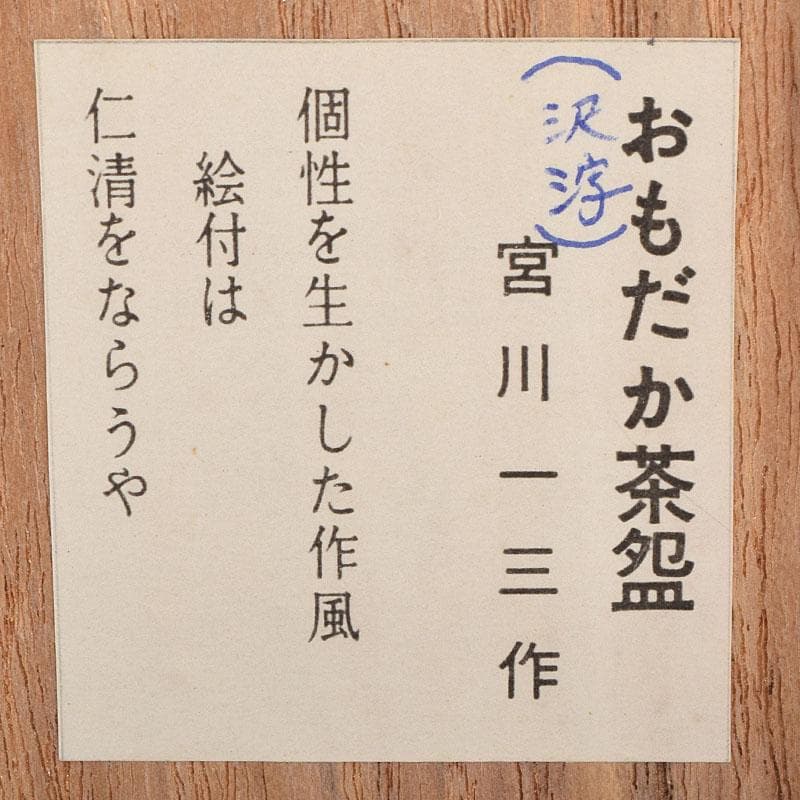 おもだか茶盌
(沢泻)
宮川一三作
個性を生かした作風
絵付は
仁清をならうや